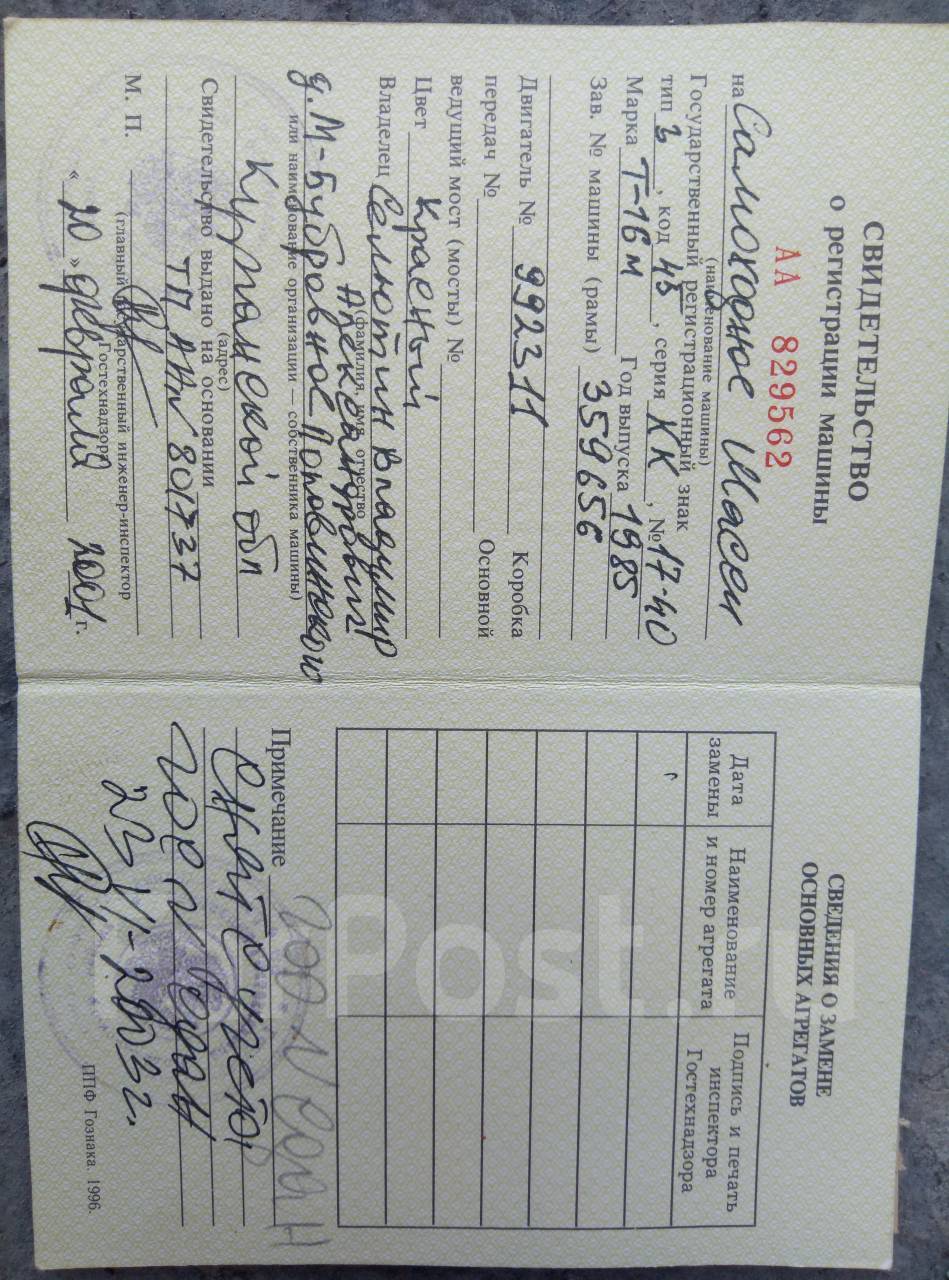 СВИДЕТЕЛЬСТВО
о регистрации машины
АА 829562
на Самоходное Шасси
(наименование машины)
Государственный регистрационный знак
тип 3, код 45, серия КК, № 17-40
Марка Т-16м Год выпуска 1985
Зав. № машины (рамы) 359656
Двигатель № 992311 Коробка
передач № Основной
ведущий мост (мосты) №
Цвет Красный
Владелец Селютин Владимир
(фамилия, имя, отчество
Александрович
д. М-Бубровное Половинского
или наименование организации — собственника машины)
Курганской обл
(адрес)
Свидетельство выдано на основании
ТП 801737
М. П.
(главный государственный инженер-инспектор
Гостехнадзора)
« 20 » февраля 2001 г.
СВЕДЕНИЯ О ЗАМЕНЕ
ОСНОВНЫХ АГРЕГАТОВ
Дата замены
Наименование и номер агрегата
Подпись и печать инспектора Гостехнадзора
Примечание
снят с учета
ППФ Гознака. 1996.
Post.ru